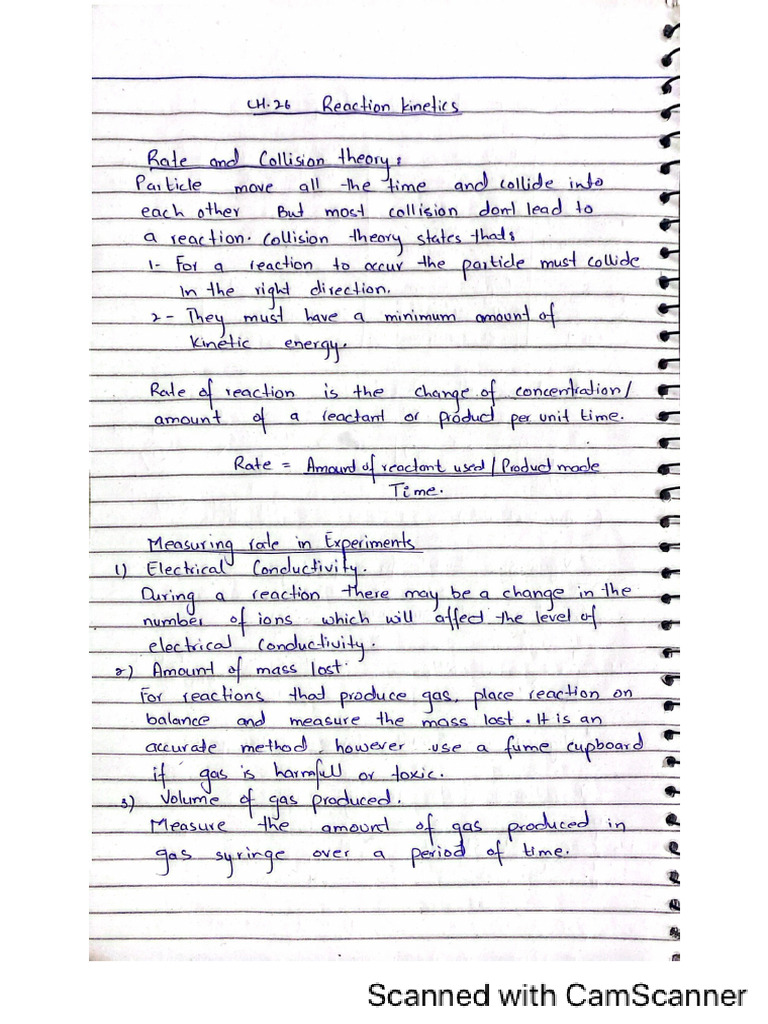 CH.26 Reaction kinetics
Rate and Collision theory:
Particle move all the time and collide into
each other But most collision dont lead to
a reaction. Collision theory states that:
1- For a reaction to occur the particle must collide
in the right direction.
2- They must have a minimum amount of
kinetic energy.
Rate of reaction is the change of concentration/
amount of a reactant or product per unit time.
Rate = Amount of reactant used / Product made
Time.
Measuring rate in Experiments
1) Electrical Conductivity.
During a reaction there may be a change in the
number of ions which will affect the level of
electrical conductivity.
2) Amount of mass lost.
For reactions that produce gas, place reaction on
balance and measure the mass lost. It is an
accurate method, however use a fume cupboard
if gas is harmfull or toxic.
3) Volume of gas produced.
Measure the amount of gas produced in
gas syringe over a period of time.
Scanned with CamScanner